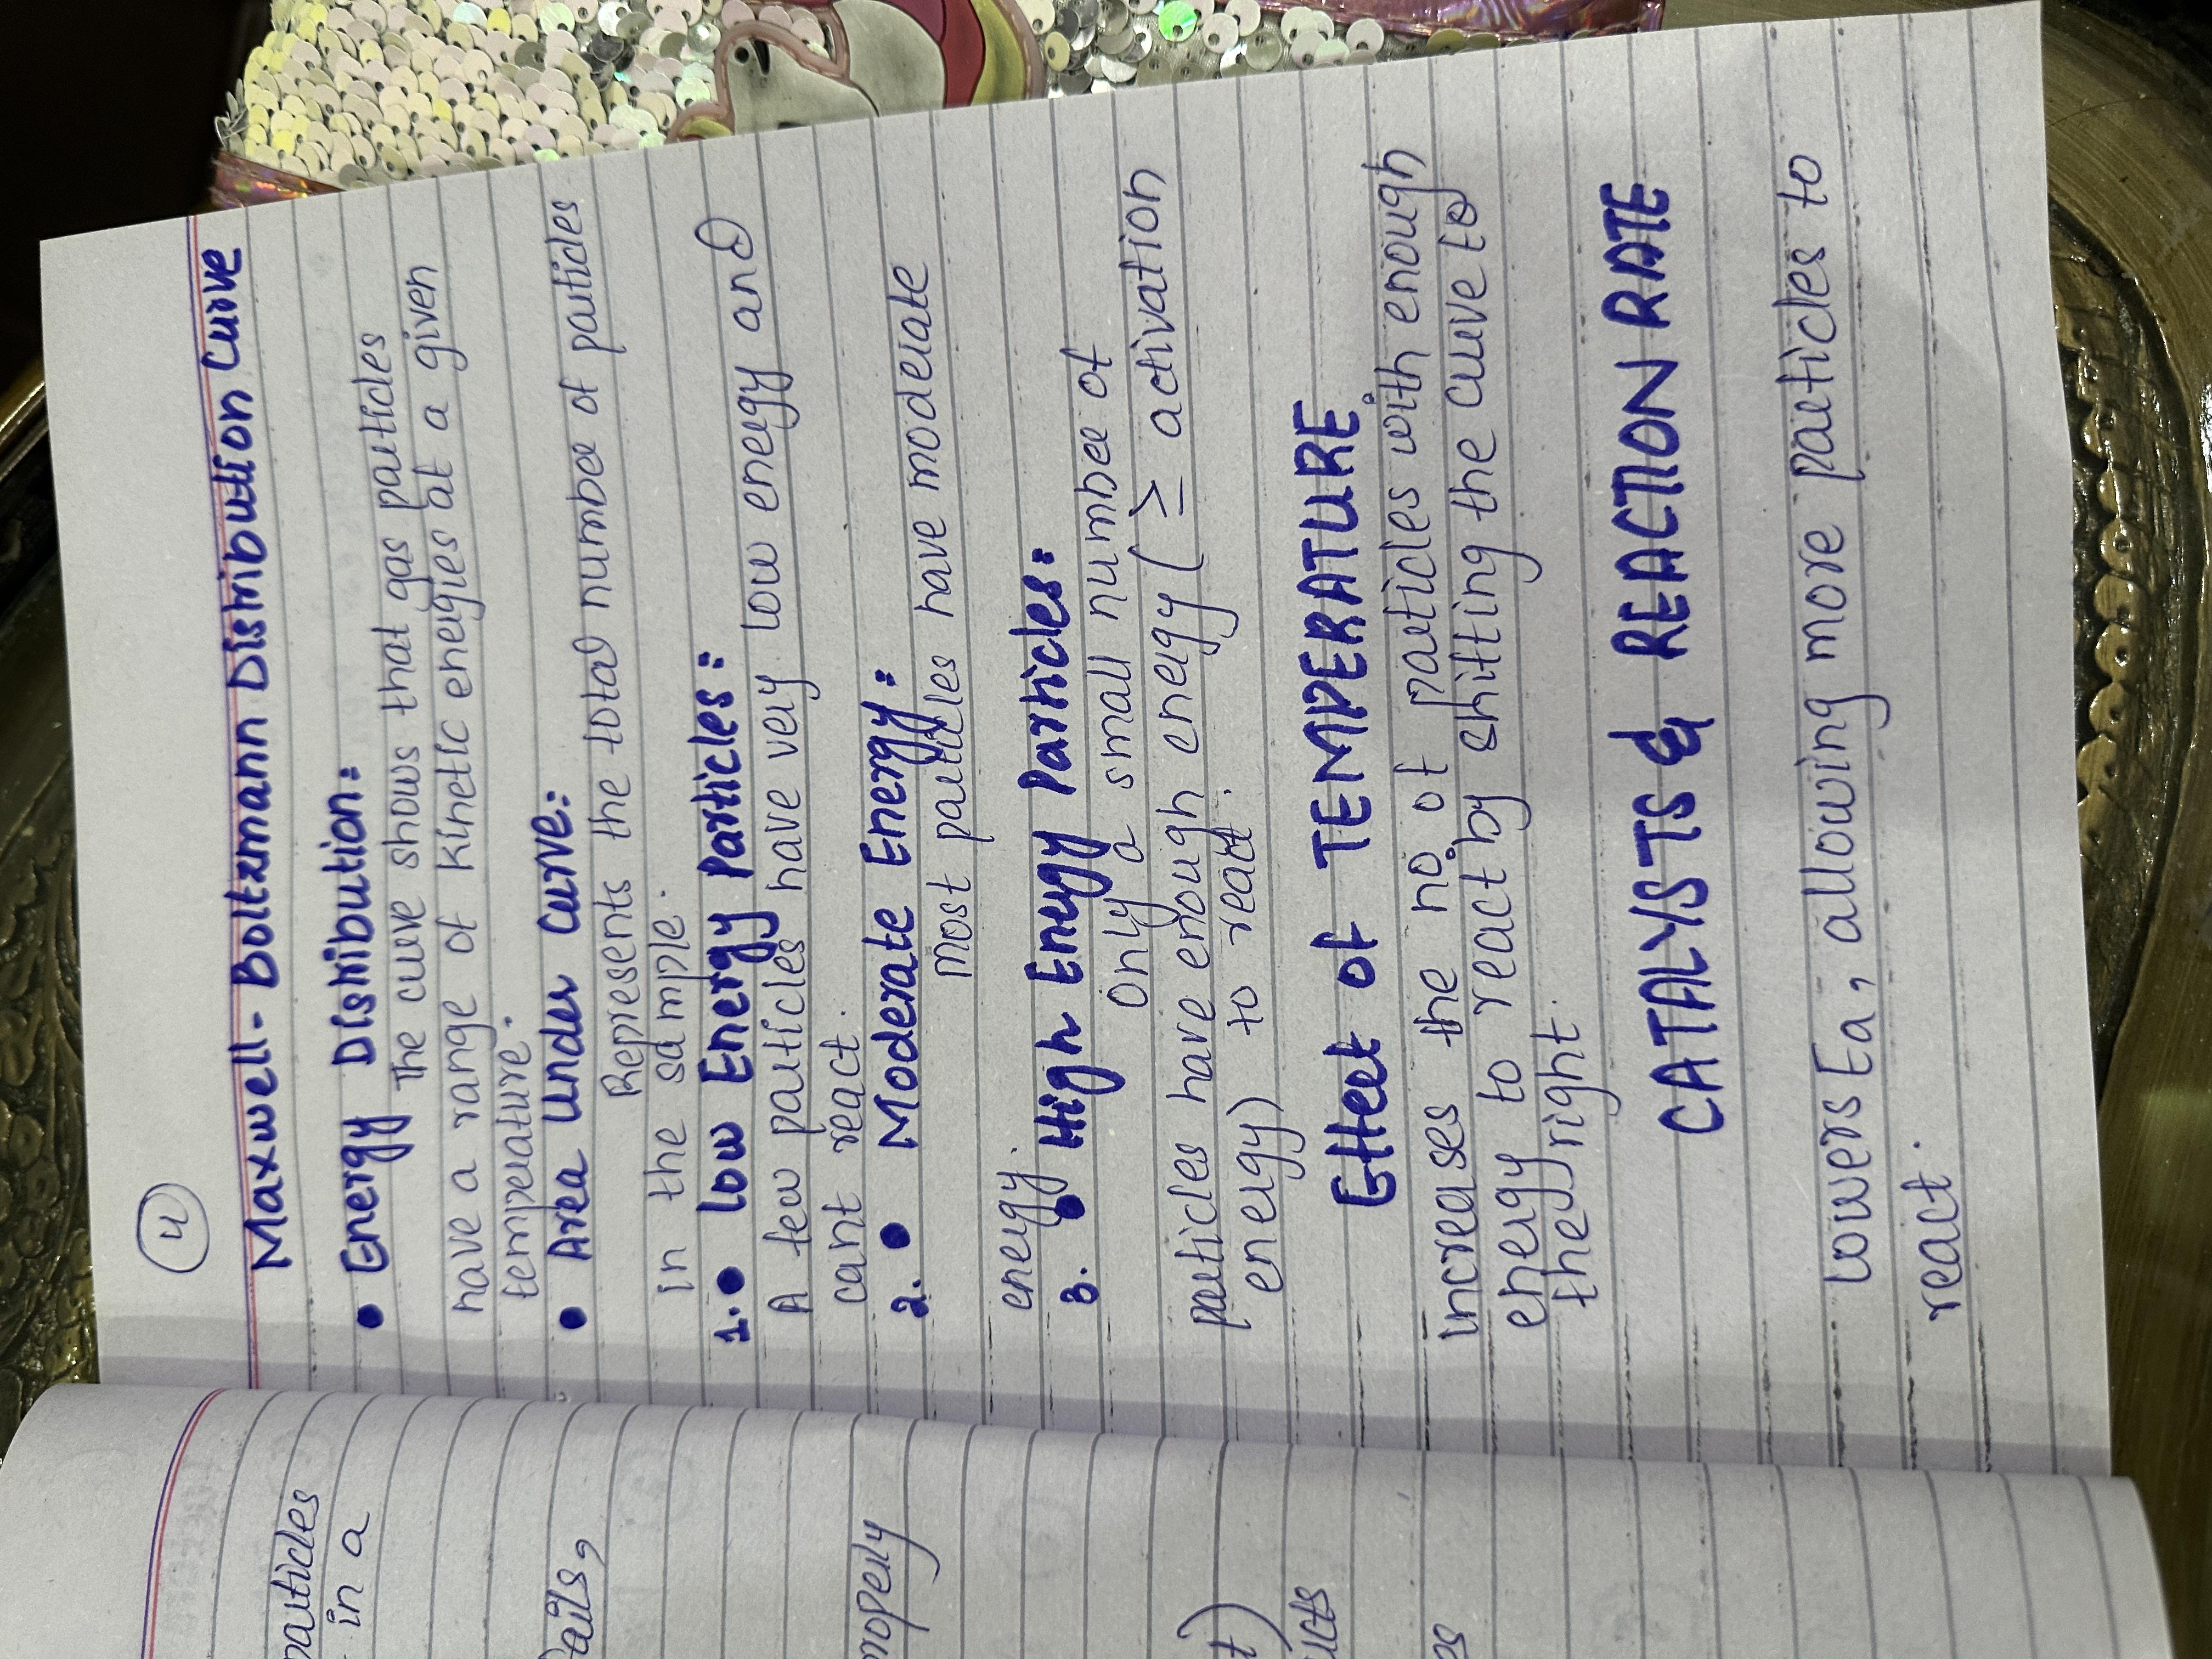 4
Maxwell-Boltzmann Distribution Curve
• Energy Distribution:
The curve shows that gas particles
have a range of kinetic energies at a given
temperature.
• Area Under Curve:
Represents the total number of particles
in the sample.
1.• Low Energy Particles:
A few particles have very low energy and
cant react.
2.• Moderate Energy:
Most particles have moderate
energy.
3.• High Energy Particles:
Only a small number of
particles have enough energy (≥ activation
energy) to react.
Effect of TEMPERATURE
increases the no. of particles with enough
energy to react by shifting the curve to
the right.
CATALYSTS & REACTION RATE
Lowers Ea, allowing more particles to
react.
particles
in a